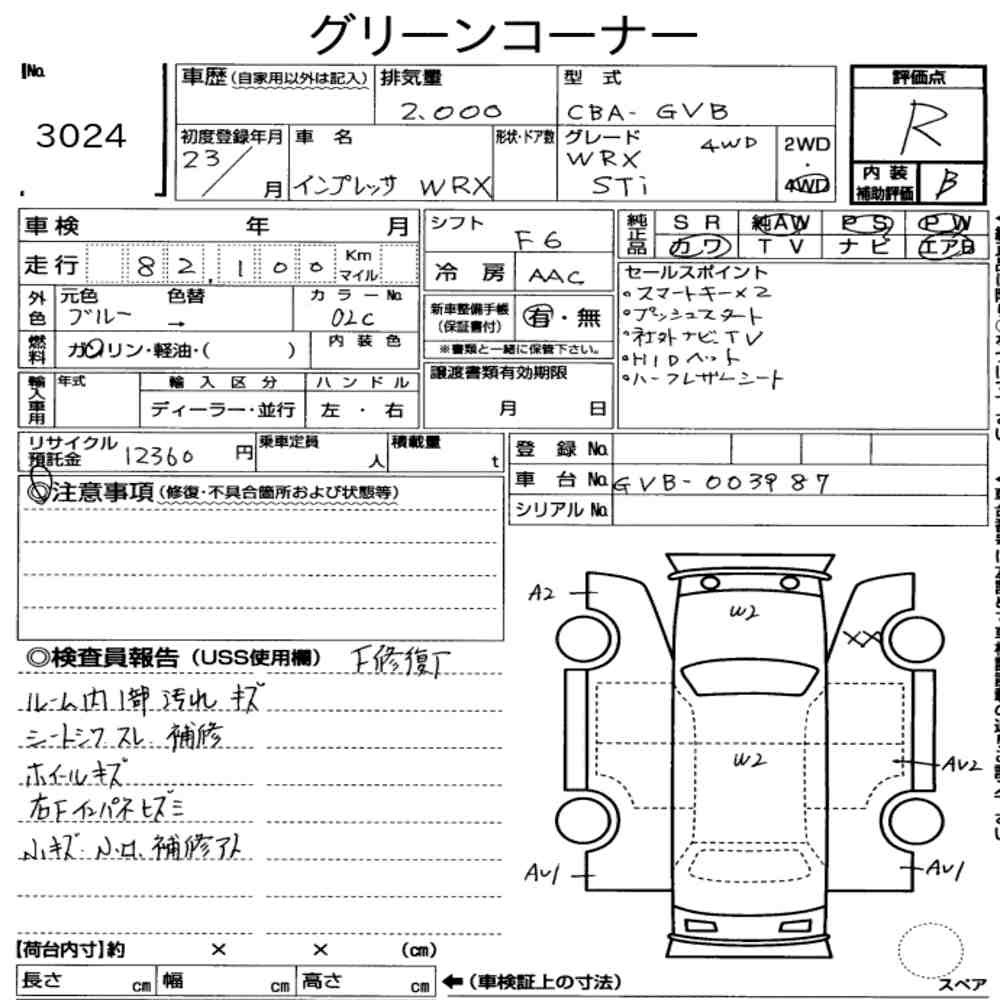 グリーンコーナー
No.
3024
車歴(自家用以外は記入)
排気量
2.000
型 式
CBA- GVB
評価点
R
内 装
補助評価
B
初度登録年月
23
月
車 名
インプレッサ WRX
形状・ドア数
グレード
WRX
STi
4WD
2WD
・
4WD
車検 年 月
走行 82,100 Km
マイル
外
色
元色
ブルー
色替
→
カラーNo.
02C
燃
料
ガソリン・軽油・( )
内 装 色
輸
入
車
用
年式
輸 入 区 分
ディーラー・並行
ハ ン ド ル
左 ・ 右
シフト
F6
冷 房
AAC
新車整備手帳
(保証書付)
有・無
※書類と一緒に保管下さい。
譲渡書類有効期限
月 日
純
正
品
S R 純AW P S P W
カワ T V ナ ビ エアB
セールスポイント
・スマートキー×2
・プッシュスタート
・社外ナビTV
・HIDヘット
・ハーフレザーシート
リサイクル
預託金
12360 円
乗車定員
人
積載量
t
登 録 No.
車 台 No. GVB-003987
シリアル No.
◎注意事項(修復・不具合箇所および状態等)
◎検査員報告(USS使用欄) F修復
ルーム内1部汚れ キズ
シートシワ スレ 補修
ホイールキズ
右Fインパネヒズミ
小キズ 小凹 補修アト
A2
W2
XX
W2
AU2
AU1
AU1
【荷台内寸】約 × × (cm)
長さ cm 幅 cm 高さ cm ←(車検証上の寸法)
スペア